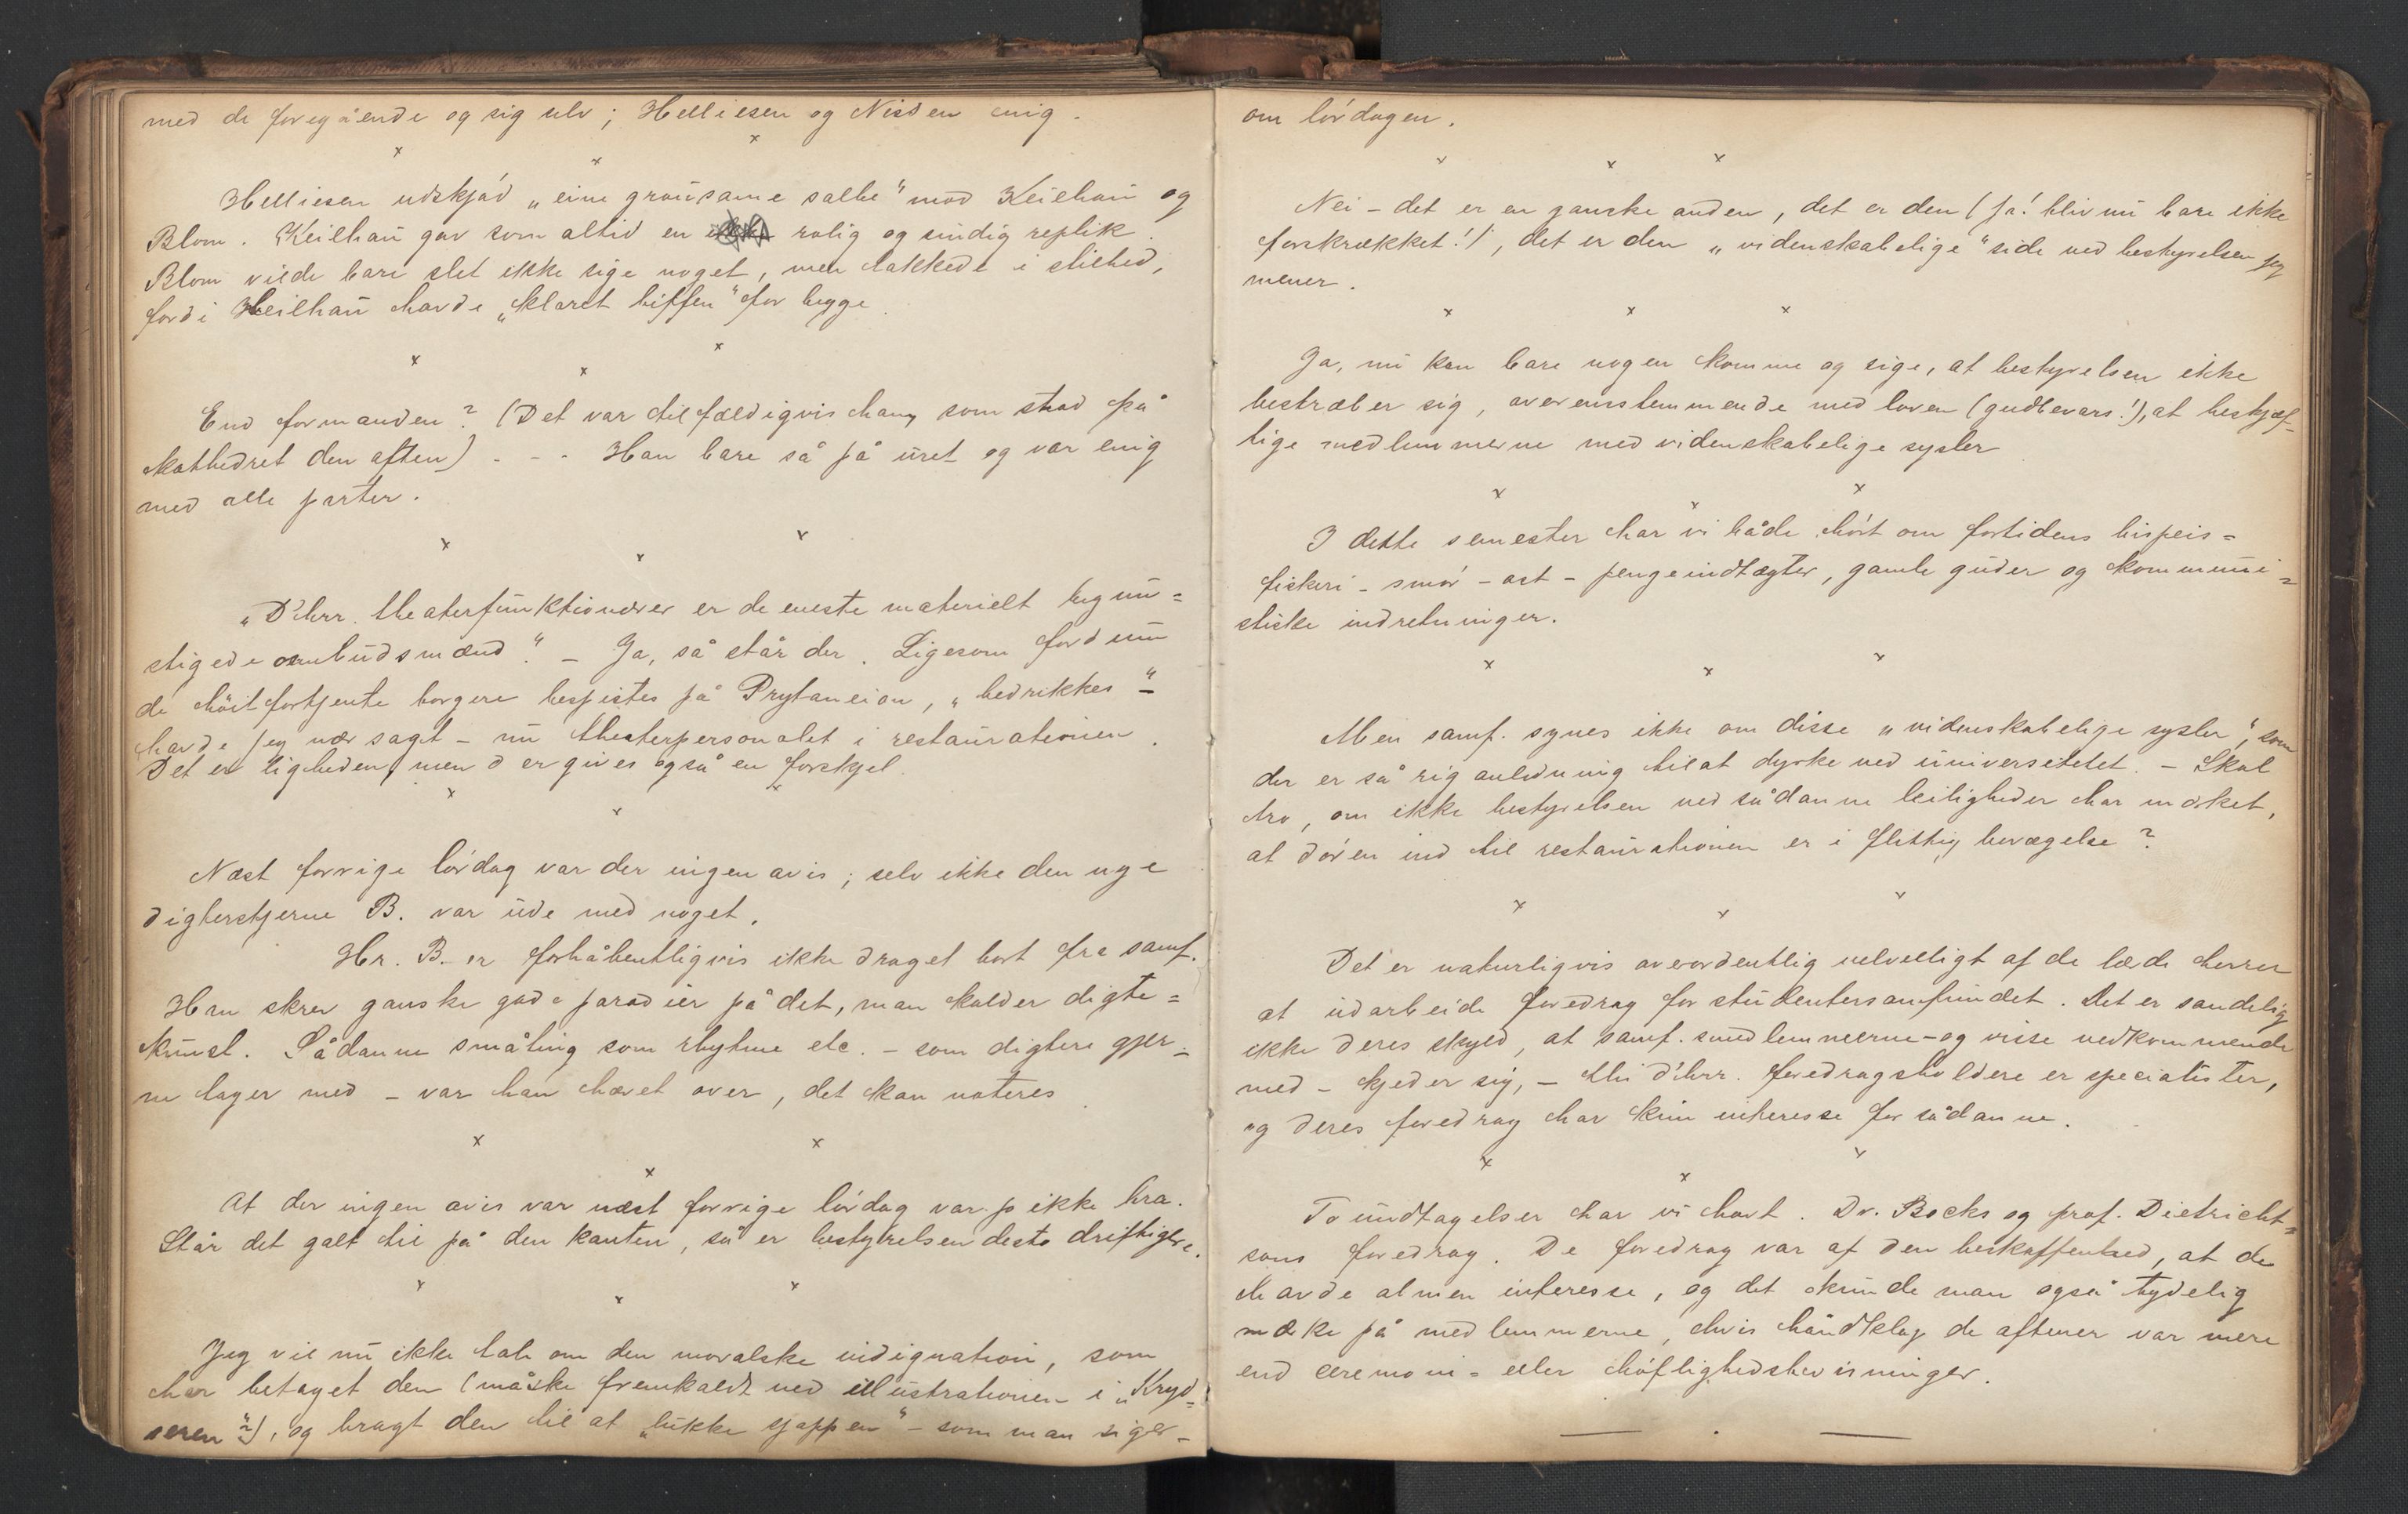 med de foregående og sig selv; Helliesen og Nissen enig.
x x x
Helliesen udskjød „eine grausame salbe“ mod Keilhau og
Blom. Keilhau gav som altid en rolig og sindig replik.
Blom vilde bare slet ikke sige noget, men takkede i stilhed,
fordi Keilhau havde „klaret biffen“ for begge.
x x x
End formanden? (Det var tilfældigvis ham, som stod på
kathedret den aften) - - - Han bare så på uret og var enig
med alle parter.
x x x
„D'hrr. theaterfunktionærer er de eneste materielt begun=
stigede ombudsmænd.“ – Ja, så står der. Ligesom fordum
de høitfortjente borgere bespistes på Prytaneion, „bedrikkes“ –
havde jeg nær sagt – nu theaterpersonalet i restaurationen.
Det er ligheden, men der gives også en forskjel.
x x x
Næst forrige lørdag var der ingen avis; selv ikke den nye
digterstjerne B. var ude med noget.
Hr. B. er forhåbentligvis ikke draget bort fra samf.
Han skrev ganske gode parodier på det, man kalder digte=
kunst. Sådanne småting som rhytme etc. – som digtere gjer=
ne tager med – var han hævet over, det kan noteres.
x x x
At der ingen avis var næst forrige lørdag var jo ikke bra.
Står det galt til på den kanten, så er bestyrelsen desto driftigere.
x x x
Jeg vil nu ikke tale om den moralske indignation, som
har betaget den (måske fremkaldt ved illustrationen i „Kryd=
seren“?), og bragt den til at „lukke sjappen“ – som man siger –
om lørdagen.
x x x
Nei – det er en ganske anden, det er den (ja! bliv nu bare ikke
forskrækket!), det er den „videnskabelige“ side ved bestyrelsen jeg
mener.
x x x
Ja, nu kan bare nogen komme og sige, at bestyrelsen ikke
bestræber sig, overensstemmende med loven (gudbevars!), at beskjæf=
tige medlemmerne med videnskabelige sysler
x x x
I dette semester har vi både hørt om fortidens bispeis=
fiskeri - smør - ost - pengeindtægter, gamle guder og kommuni=
stiske indretninger.
x x x
Men samf. synes ikke om disse „videnskabelige sysler“, som
der er så rig anledning til at dyrke ved universitetet. – Skal
tro, om ikke bestyrelsen ved sådanne leiligheder har mærket,
at døren ind til restaurationen er i flittig bevægelse?
x x x
Det er naturligvis overordentlig velvilligt af de lærde herrer
at udarbeide foredrag for studentersamfundet. Det er sandelig
ikke deres skyld, at samf.smedlemmerne – og visse vedkommende
med – kjeder sig, – thi d'hrr. foredragsholdere er specialister,
og deres foredrag har kun interesse for sådanne.
x x x
To undtagelser har vi havt. Dr. Bocks og prof. Dietricht=
sons foredrag. De foredrag var af den beskaffenhed, at de
havde almen interesse, og det kunde man også tydelig
mærke på medlemmerne, hvis håndklap de aftener var mere
end ceremoni= eller høflighedsbevisninger.